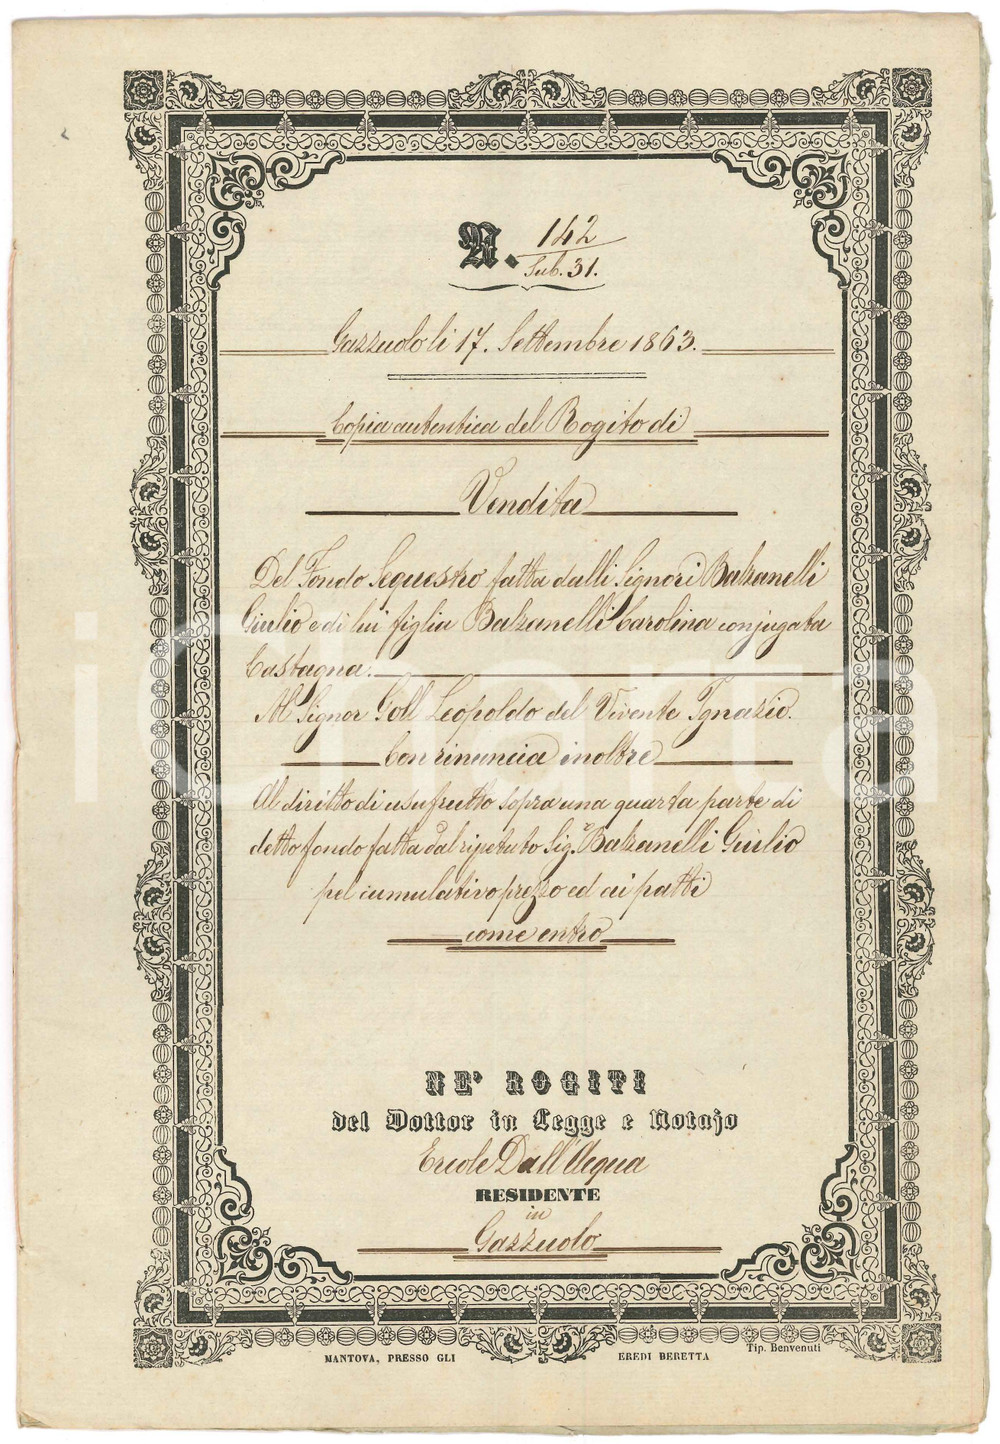 N. 142
Sub. 31.
Gazzuolo li 17. Settembre 1863.
Copia autentica del Rogito di
Vendita
Del Fondo Sequestro fatta dalli Signori Balzanelli
Giulio e di lui figlia Balzanelli Carolina conjugata
Castagna.
Al Signor Goll Leopoldo del Vivente Ignazio.
Con rinuncia inoltre
Al diritto di usufrutto sopra una quarta parte di
detto fondo fatta dal ripetuto Sig.r Balzanelli Giulio
pel cumulativo prezzo ed ai patti
come entro
NE' ROGITI
del Dottor in Legge e Notajo
Ercole Dall'Acqua
RESIDENTE
in
Gazzuolo
MANTOVA, PRESSO GLI EREDI BERETTA
Tip. Benvenuti
iCharta